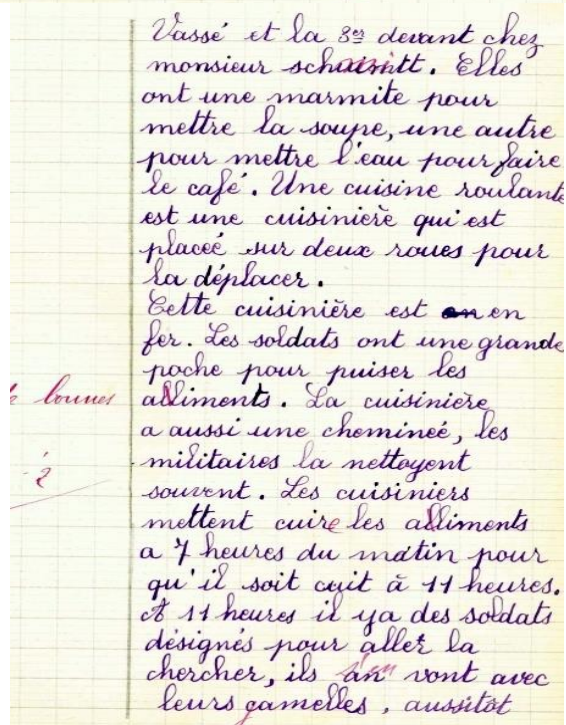 Vassé et la 3es devant chez
monsieur schmitt. Elles
ont une marmite pour
mettre la soupe, une autre
pour mettre l'eau pour faire
le café. Une cuisine roulante
est une cuisinière qui est
placeé sur deux roues pour
la déplacer.
Cette cuisinière est en
fer. Les soldats ont une grande
poche pour puiser les
alliments. La cuisinière
a aussi une cheminèé, les
militaires la nettoyent
souvent. Les cuisiniers
mettent cuire les alliments
a 7 heures du matin pour
qu'il soit cuit à 11 heures.
A 11 heures il ya des soldats
désignés pour aller la
chercher, ils vont avec
leurs gamelles, aussitôt
2